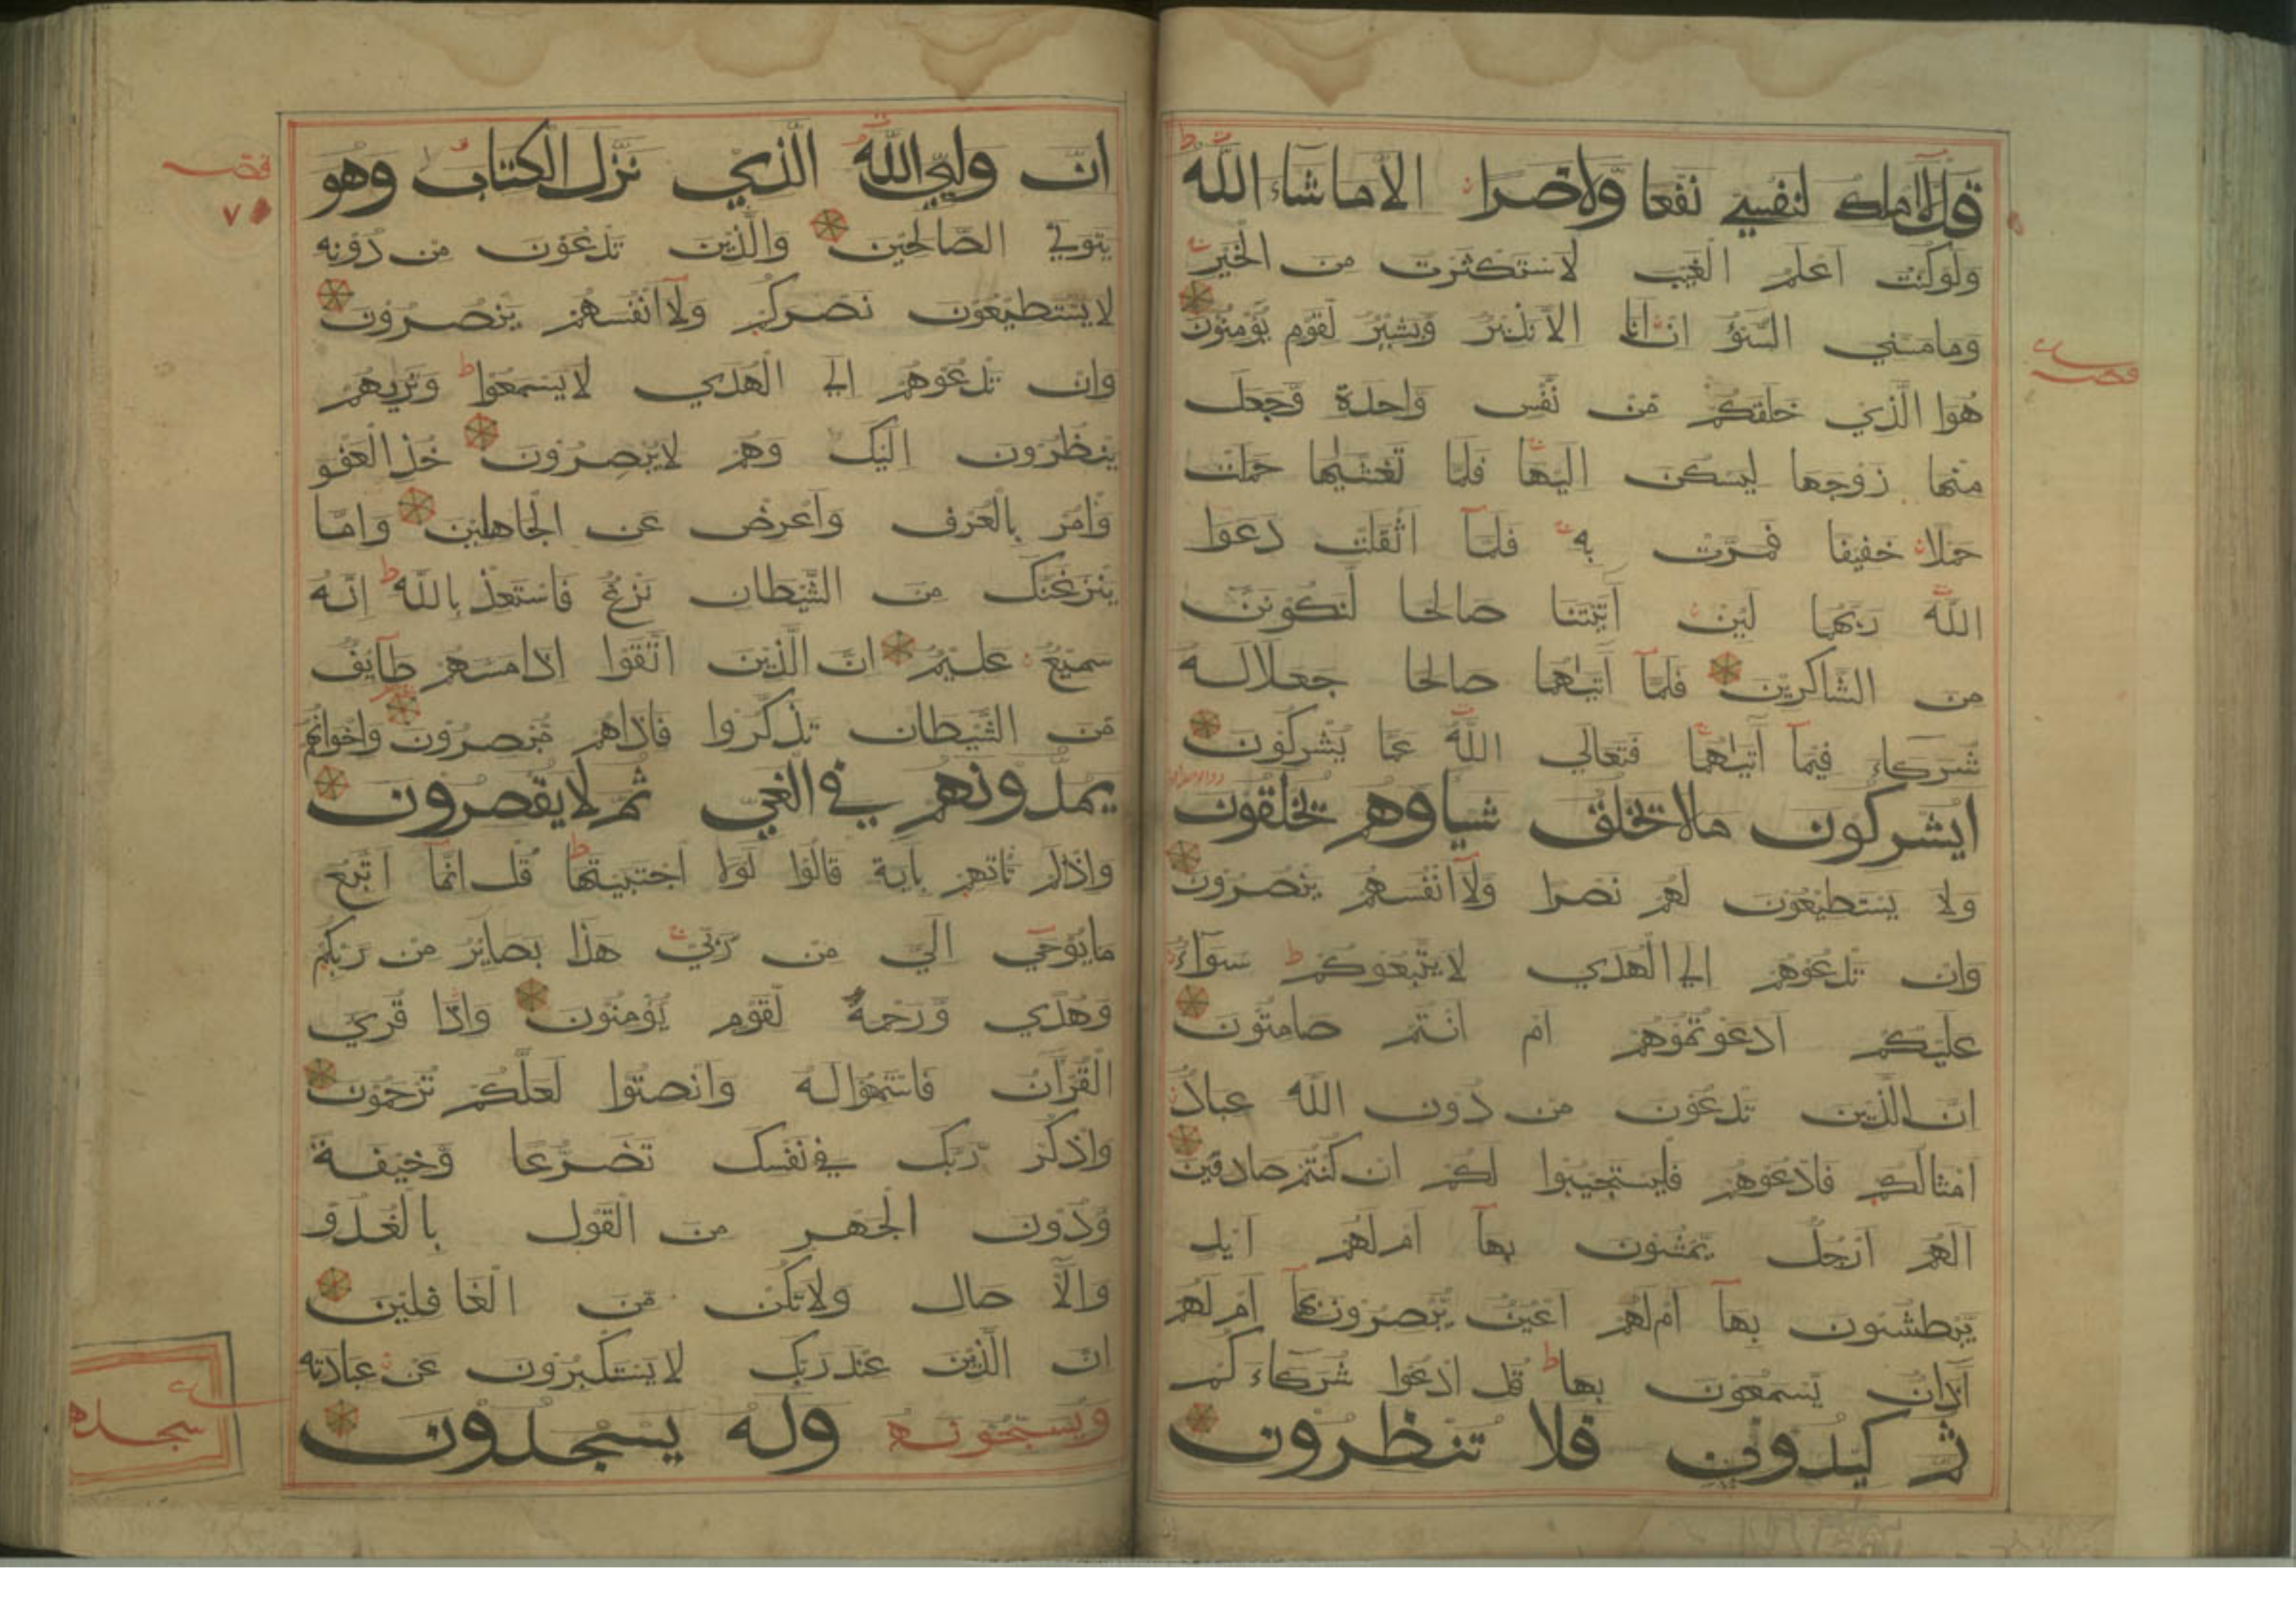 قل لا املك لنفسي نفعا ولا ضرا الا ما شاء الله
ولو كنت اعلم الغيب لاستكثرت من الخير
وما مسني السوء ان انا الا نذير وبشير لقوم يؤمنون
هوا الذي خلقكم من نفس واحدة وجعل
منها زوجها ليسكن اليها فلما تغشيها حملت
حملا خفيفا فمرت به فلما اثقلت دعوا
الله ربهما لين آتيتنا صالحا لنكونن
من الشاكرين فلما آتيهما صالحا جعلا له
شركاء فيما آتيهما فتعالى الله عما يشركون
ايشركون مالا تخلق شيا وهم تخلقون
ولا يستطيعون لهم نصرا ولا انفسهم ينصرون
وان تدعوهم الي الهدي لا يتبعوكم سواء
عليكم ادعوتموهم ام انتم صامتون
ان الذين تدعون من دون الله عباد
امثالكم فادعوهم فليستجيبوا لكم ان كنتم صادقين
الهم ارجل يمشون بها ام لهم ايد
يبطشون بها ام لهم اعين يبصرون بها ام لهم
آذان يسمعون بها قل ادعوا شركاءكم
ثم كيدون فلا تنظرون
ان وليي الله الذي نزل الكتاب وهو
يتولي الصالحين والذين تدعون من دونه
لا يستطيعون نصركم ولا انفسهم ينصرون
وان تدعوهم الي الهدي لا يسمعوا وتريهم
ينظرون اليك وهم لا يبصرون خذ العفو
وامر بالعرف واعرض عن الجاهلين واما
ينزغنك من الشيطان نزغ فاستعذ بالله انه
سميع عليم ان الذين اتقوا اذا مسهم طايف
من الشيطان تذكروا فاذاهم مبصرون واخوانهم
يمدونهم في الغي ثم لا يقصرون
واذا لم تاتهم بآية قالوا لولا اجتبيتها قل انما اتبع
ما يوحي الي من ربي هذا بصاير من ربكم
وهدي ورحمة لقوم يؤمنون واذا قري
القرآن فاستمعوا له وانصتوا لعلكم ترحمون
واذكر ربك في نفسك تضرعا وخيفة
ودون الجهر من القول بالغدو
والآ صال ولا تكن من الغافلين
ان الذين عند ربك لا يستكبرون عن عبادته
ويسبحونه وله يسجدون
سجده